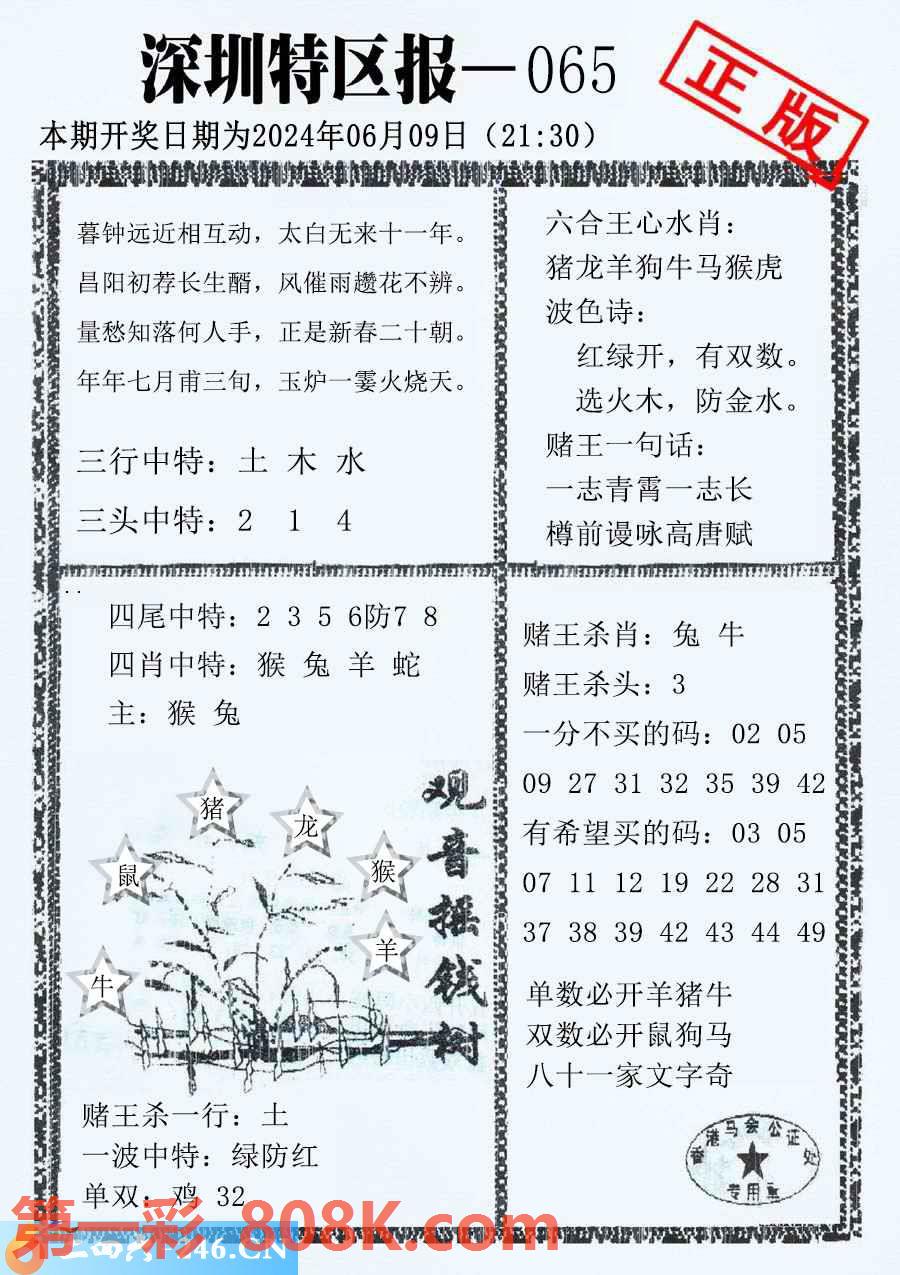 深圳特区报—065
正版
本期开奖日期为2024年06月09日（21:30）
暮钟远近相互动，太白无来十一年。
昌阳初荐长生醑，风催雨趱花不辨。
量愁知落何人手，正是新春二十朝。
年年七月甫三旬，玉炉一霎火烧天。
三行中特：土 木 水
三头中特：2 1 4
六合王心水肖：
猪龙羊狗牛马猴虎
波色诗：
红绿开，有双数。
选火木，防金水。
赌王一句话：
一志青霄一志长
樽前谩咏高唐赋
四尾中特：2 3 5 6防7 8
四肖中特：猴 兔 羊 蛇
主：猴 兔
猪
龙
鼠
猴
羊
牛
观音摇钱树
赌王杀一行：土
一波中特：绿防红
单双：鸡 32
赌王杀肖：兔 牛
赌王杀头：3
一分不买的码：02 05
09 27 31 32 35 39 42
有希望买的码：03 05
07 11 12 19 22 28 31
37 38 39 42 43 44 49
单数必开羊猪牛
双数必开鼠狗马
八十一家文字奇
香港马会公证处
专用章
第一彩.808K.com
246.CN